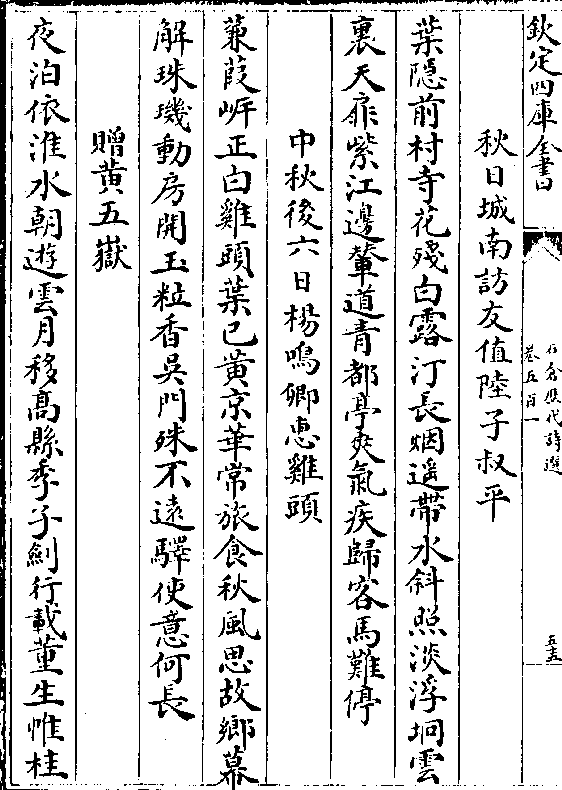 欽定四庫全書
石倉歷代詩選
卷五百一
五十五
秋日城南訪友值陸子叔平
葉隱前村寺花殘白露汀長烟遥帶水斜照淡浮坰雲
裏天扉紫江邊輦道青都亭爽氣疾歸客馬難停
中秋後六日楊鳴卿惠雞頭
蒹葭岸正白雞頭葉已黄京華常旅食秋風思故鄉幕
解珠璣動房開玉粒香吳門殊不遠驛使意何長
贈黄五嶽
夜泊依淮水朝遊雲月移髙縣季子劍行載董生帷桂